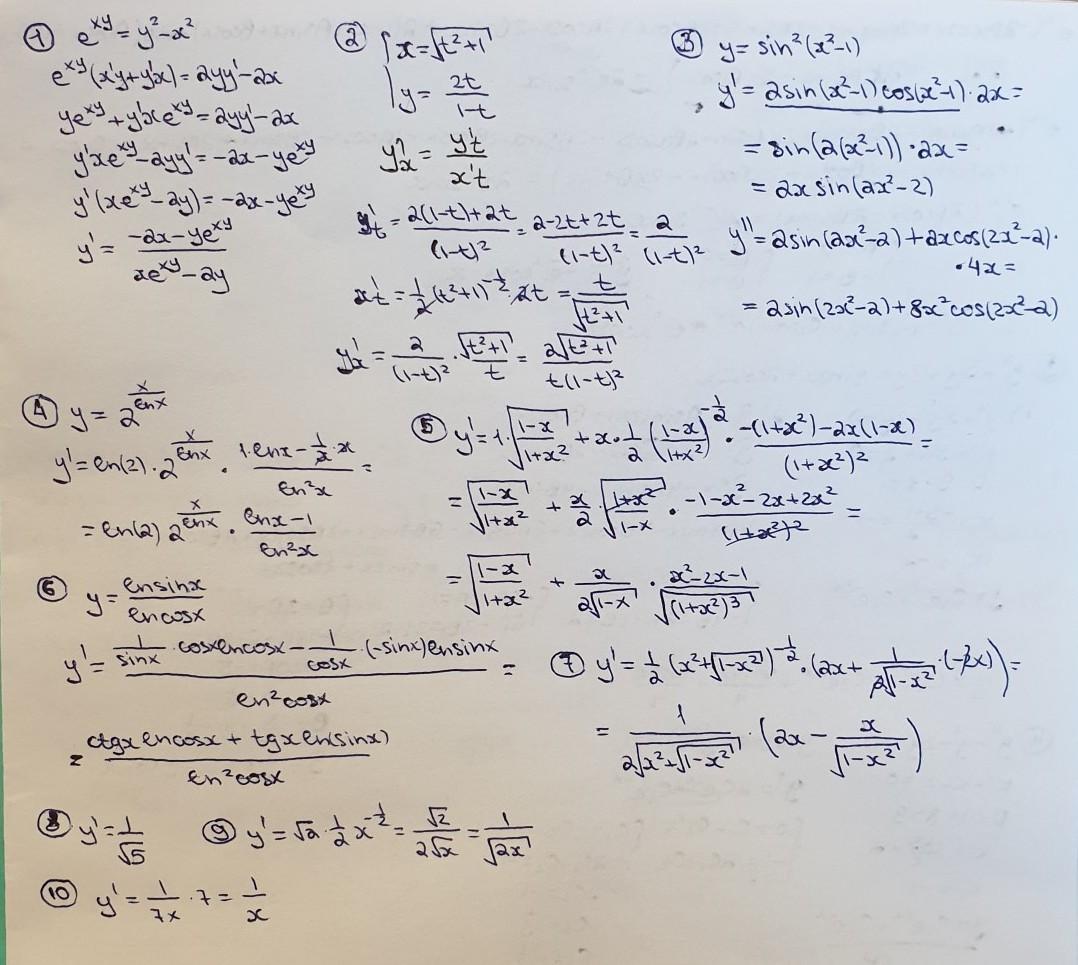 ① e^{xy} = y² - x²
e^{xy}(x'y + y'x) = 2yy' - 2x
ye^{xy} + y'xe^{xy} = 2yy' - 2x
y'xe^{xy} - 2yy' = -2x - ye^{xy}
y'(xe^{xy} - 2y) = -2x - ye^{xy}
y' = \frac{-2x - ye^{xy}}{xe^{xy} - 2y}
② { x = \sqrt{t² + 1}
y = \frac{2t}{1-t}
y'_x = \frac{y't}{x't}
y'_t = \frac{2(1-t) + 2t}{(1-t)²} = \frac{2 - 2t + 2t}{(1-t)²} = \frac{2}{(1-t)²}
x't = \frac{1}{2}(t² + 1)^{-\frac{1}{2}} · 2t = \frac{t}{\sqrt{t² + 1}}
y'_x = \frac{2}{(1-t)²} · \frac{\sqrt{t² + 1}}{t} = \frac{2\sqrt{t² + 1}}{t(1-t)²}
③ y = sin²(x² - 1)
y' = 2sin(x² - 1)cos(x² - 1) · 2x =
= sin(2(x² - 1)) · 2x =
= 2x sin(2x² - 2)
y'' = 2sin(2x² - 2) + 2x cos(2x² - 2) ·
· 4x =
= 2sin(2x² - 2) + 8x² cos(2x² - 2)
④ y = 2^{\frac{x}{lnx}}
y' = ln(2) · 2^{\frac{x}{lnx}} · \frac{1·lnx - \frac{1}{x}·x}{ln²x} =
= ln(2) 2^{\frac{x}{lnx}} · \frac{lnx - 1}{ln²x}
⑤ y' = 1 · \sqrt{\frac{1-x}{1+x²}} + x · \frac{1}{2} (\frac{1-x}{1+x²})^{-\frac{1}{2}} · \frac{-(1+x²) - 2x(1-x)}{(1+x²)²} =
= \sqrt{\frac{1-x}{1+x²}} + \frac{x}{2} · \sqrt{\frac{1+x²}{1-x}} · \frac{-1 - x² - 2x + 2x²}{(1+x²)²} =
= \sqrt{\frac{1-x}{1+x²}} + \frac{x}{2\sqrt{1-x}} · \frac{x² - 2x - 1}{\sqrt{(1+x²)³}}
⑥ y = \frac{lnsinx}{lncosx}
y' = \frac{\frac{1}{sinx} · cosx lncosx - \frac{1}{cosx} · (-sinx) lnsinx}{ln²cosx} =
= \frac{ctgx lncosx + tgx ln(sinx)}{ln²cosx}
⑦ y' = \frac{1}{2}(x² + \sqrt{1-x²})^{-\frac{1}{2}} · (2x + \frac{1}{2\sqrt{1-x²}} · (-2x)) =
= \frac{1}{2\sqrt{x² + \sqrt{1-x²}}} · (2x - \frac{x}{\sqrt{1-x²}})
⑧ y' = \frac{1}{\sqrt{5}}
⑨ y' = \sqrt{2} · \frac{1}{2} x^{-\frac{1}{2}} = \frac{\sqrt{2}}{2\sqrt{x}} = \frac{1}{\sqrt{2x}}
⑩ y' = \frac{1}{7x} · 7 = \frac{1}{x}